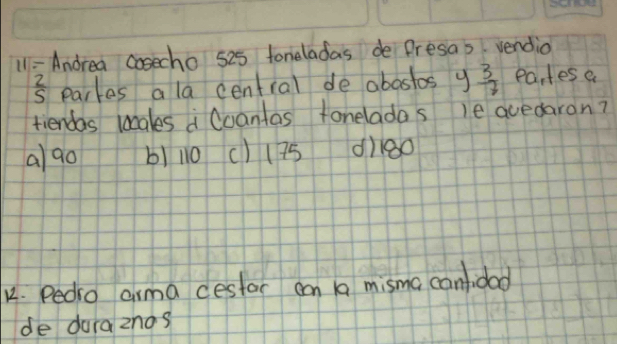 11.- Andrea cosecho 525 toneladas de fresas. vendio
2/5 partes a la central de abastos y 3/7 partes a
tiendas locales ¿Cuantas toneladas le quedaron?
a) 90 b) 110 c) 175 d) 180
12. Pedro arma cestar con la misma cantidad
de duraznos